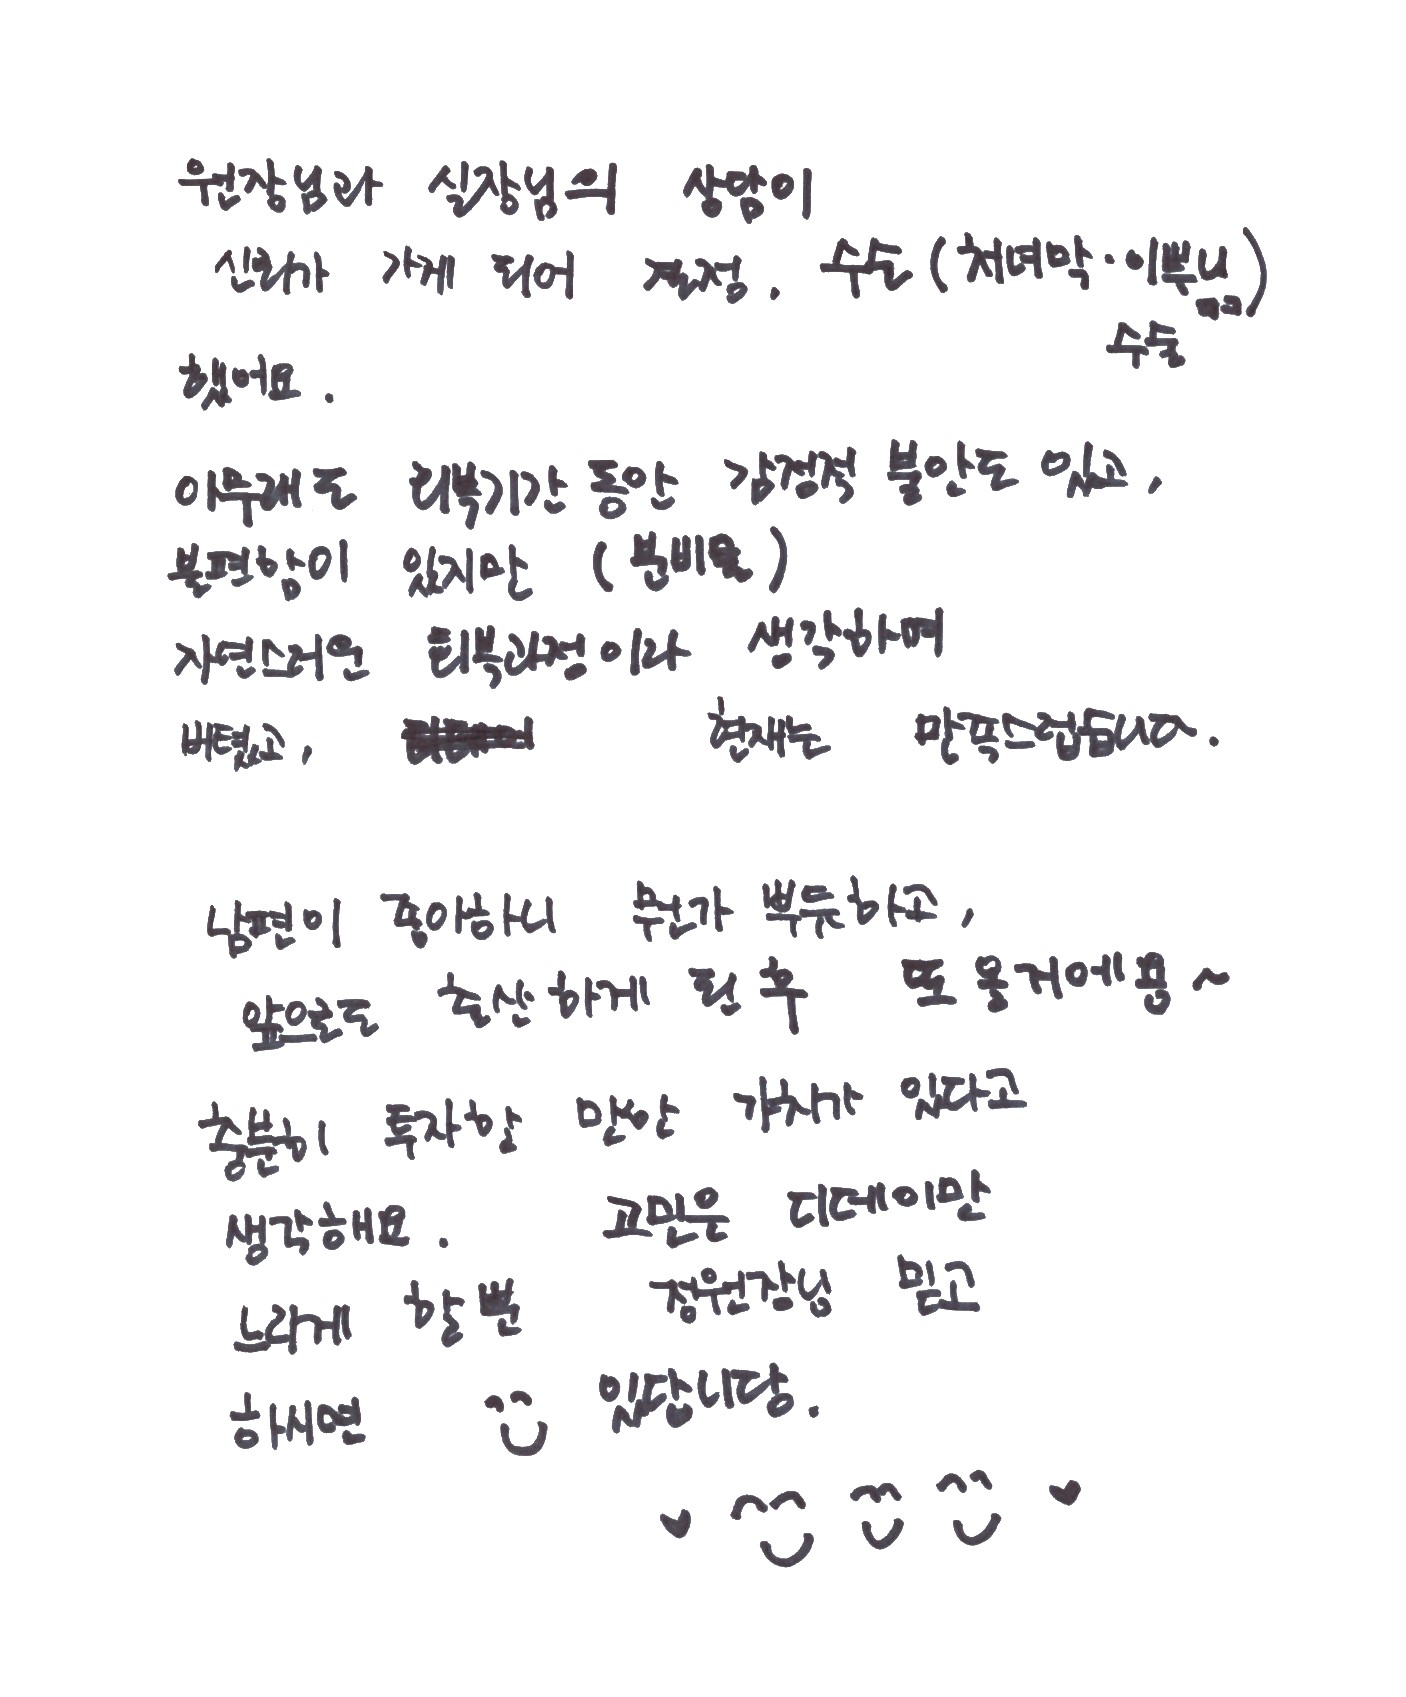 원장님과 실장님의 상담이
신뢰가 가게 되어 결정. 수술 (처녀막·이쁘니)
수술
했어요.
아무래도 회복기간 동안 감정적 불안도 있고,
불편함이 있지만 (분비물)
자연스러운 회복과정이라 생각하며
버텼고, 현재는 만족스럽습니다.
남편이 좋아하니 뭔가 뿌듯하고,
앞으로도 출산하게 된 후 또 올거에용~
충분히 투자할 만한 가치가 있다고
생각해요. 고민은 디데이만
느리게 할 뿐 정원장님 믿고
하시면 있답니당.